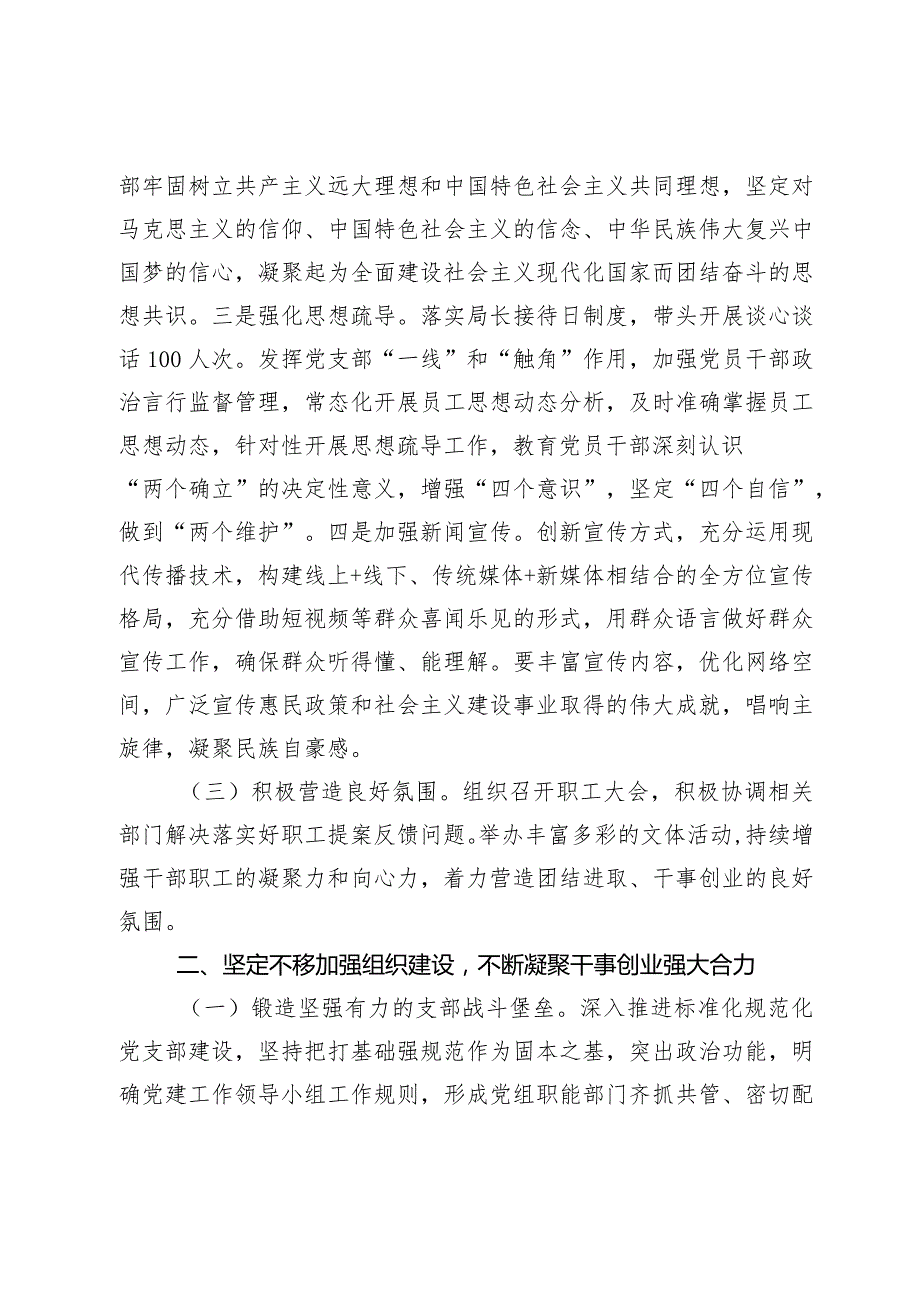 部牢固树立共产主义远大理想和中国特色社会主义共同理想，坚定对
马克思主义的信仰、中国特色社会主义的信念、中华民族伟大复兴中
国梦的信心，凝聚起为全面建设社会主义现代化国家而团结奋斗的思
想共识。三是强化思想疏导。落实局长接待日制度，带头开展谈心谈
话 100 人次。发挥党支部“一线”和“触角”作用，加强党员干部政
治言行监督管理，常态化开展员工思想动态分析，及时准确掌握员工
思想动态，针对性开展思想疏导工作，教育党员干部深刻认识
“两个确立”的决定性意义，增强“四个意识”，坚定“四个自信”，
做到“两个维护”。四是加强新闻宣传。创新宣传方式，充分运用现
代传播技术，构建线上+线下、传统媒体+新媒体相结合的全方位宣传
格局，充分借助短视频等群众喜闻乐见的形式，用群众语言做好群众
宣传工作，确保群众听得懂、能理解。要丰富宣传内容，优化网络空
间，广泛宣传惠民政策和社会主义建设事业取得的伟大成就，唱响主
旋律，凝聚民族自豪感。
（三）积极营造良好氛围。组织召开职工大会，积极协调相关
部门解决落实好职工提案反馈问题。举办丰富多彩的文体活动,持续增
强干部职工的凝聚力和向心力，着力营造团结进取、干事创业的良好
氛围。
二、坚定不移加强组织建设，不断凝聚干事创业强大合力
（一）锻造坚强有力的支部战斗堡垒。深入推进标准化规范化
党支部建设，坚持把打基础强规范作为固本之基，突出政治功能，明
确党建工作领导小组工作规则，形成党组职能部门齐抓共管、密切配